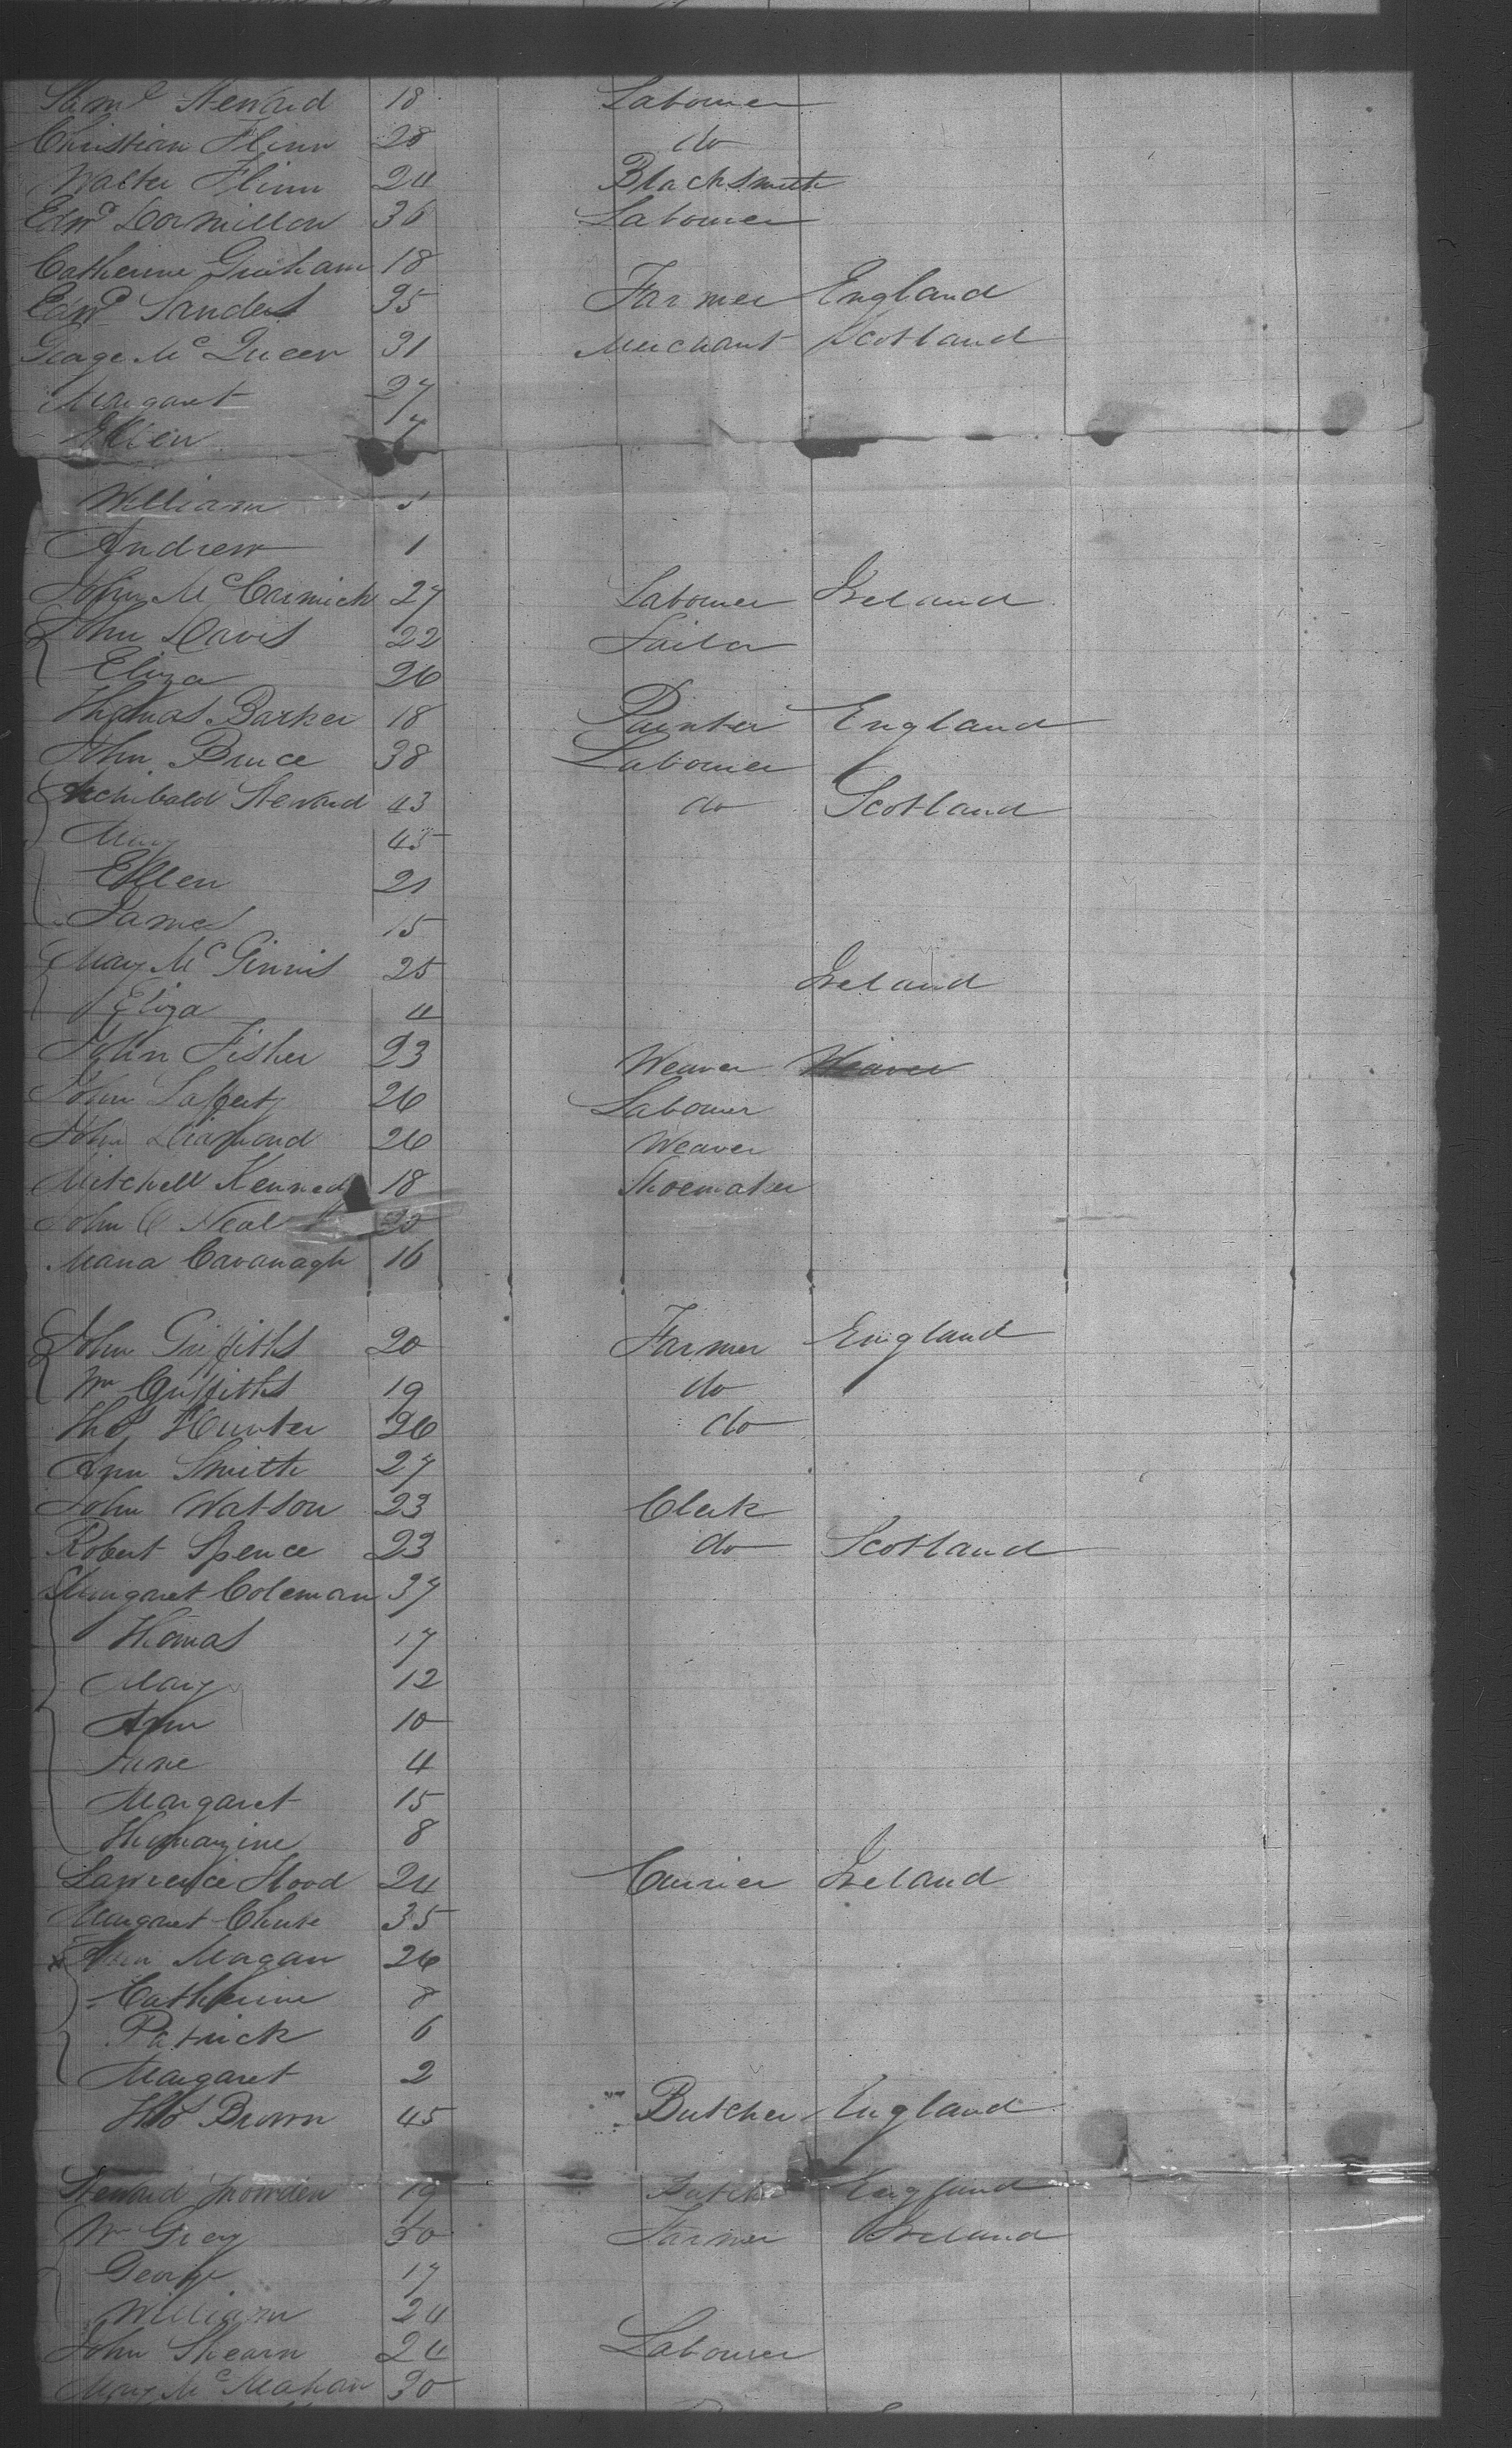 Saml Steward 18 Labourer
Christian Flinn 28 do
Walter Flinn 24 Blacksmith
Edwd Dormillon 36 Labourer
Catherine Graham 18
Edwd Sanders 35 Farmer England
George Mc Queen 31 Merchant Scotland
Margaret 27
Ellen 7
William 5
Andrew 1
John Mc Cormick 27 Labourer Ireland
John Davis 22 Sailor
Eliza 26
Thomas Barker 18 Painter England
John Bruce 38 Labourer
Archibald Steward 43 do Scotland
Mary 45
Ellen 21
James 15
Mary Mc Ginnis 25 Ireland
Eliza 4
John Fisher 23 Weaver Weaver
John Laffert 26 Labourer
John Diamond 26 Weaver
Mitchell Kennedy 18 Shoemaker
John O Neal 20
Maria Cavanagh 16
John Griffiths 20 Farmer England
Wm Griffiths 19 do
Thos Hunter 26 do
Ann Smith 27
John Watson 23 Clerk
Robert Spence 23 do Scotland
Margaret Coleman 37
Thomas 17
Mary 12
Ann 10
Jane 4
Margaret 15
Thomazine 8
Lawrence Flood 24 Currier Ireland
Margaret Chute 35
Ann Magan 26
Catherine 8
Patrick 6
Margaret 2
Thos Brown 45 Butcher England
Steward Snowden 19 Butcher England
Wm Grey 50 Farmer Ireland
George 17
William 24
John Shearn 24 Labourer
Mary Mc Mahan 30